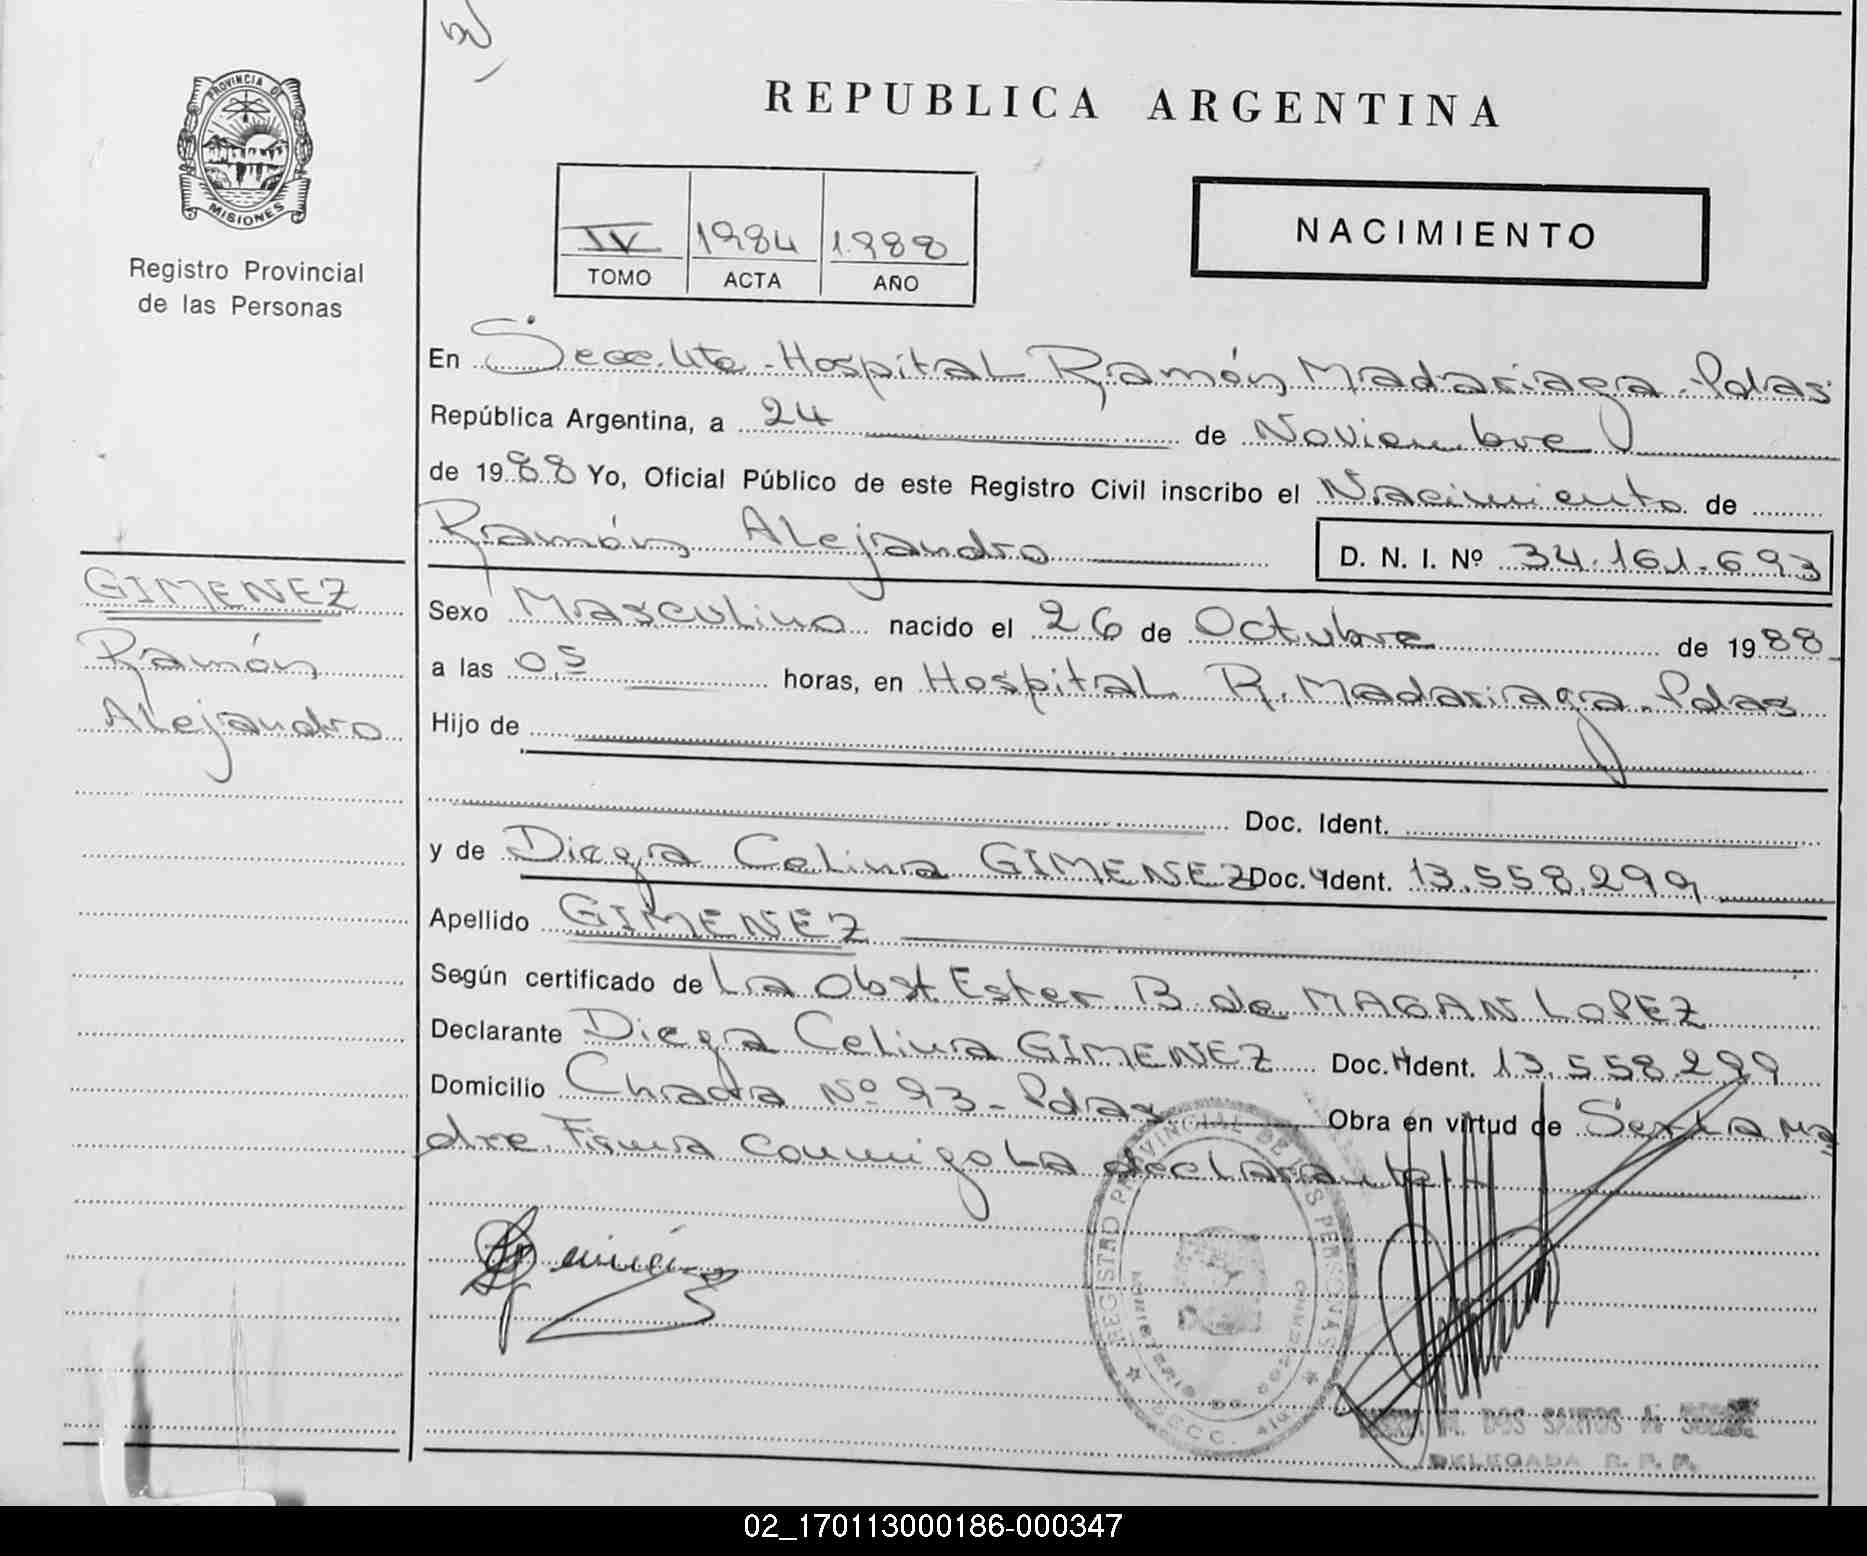 PROVINCIA DE
MISIONES
Registro Provincial
de las Personas
REPUBLICA ARGENTINA
IV 1984 1988
TOMO ACTA AÑO
NACIMIENTO
En Secc. 4ta - Hospital Ramón Madariaga - Pdas
República Argentina, a 24 de Noviembre
de 1988 Yo, Oficial Público de este Registro Civil inscribo el Nacimiento de
Ramón Alejandro D. N. I. Nº 34.161.693
GIMENEZ
Ramón
Alejandro
Sexo Masculino nacido el 26 de Octubre de 1988
a las 0,5 horas, en Hospital R. Madariaga - Pdas
Hijo de
Doc. Ident.
y de Diega Celina GIMENEZ Doc. Ident. 13.558.299
Apellido GIMENEZ
Según certificado de La Obst. Ester B. de MAGAN LOPEZ
Declarante Diega Celina GIMENEZ Doc. Ident. 13.558.299
Domicilio Chacra Nº 93 - Pdas Obra en virtud de Ser la ma
dre. Firma conmigo La declarante
REGISTRO PROVINCIAL DE LAS PERSONAS
SECC. 4ta
M. DOS SANTOS
DELEGADA R. P. P.
02_170113000186-000347